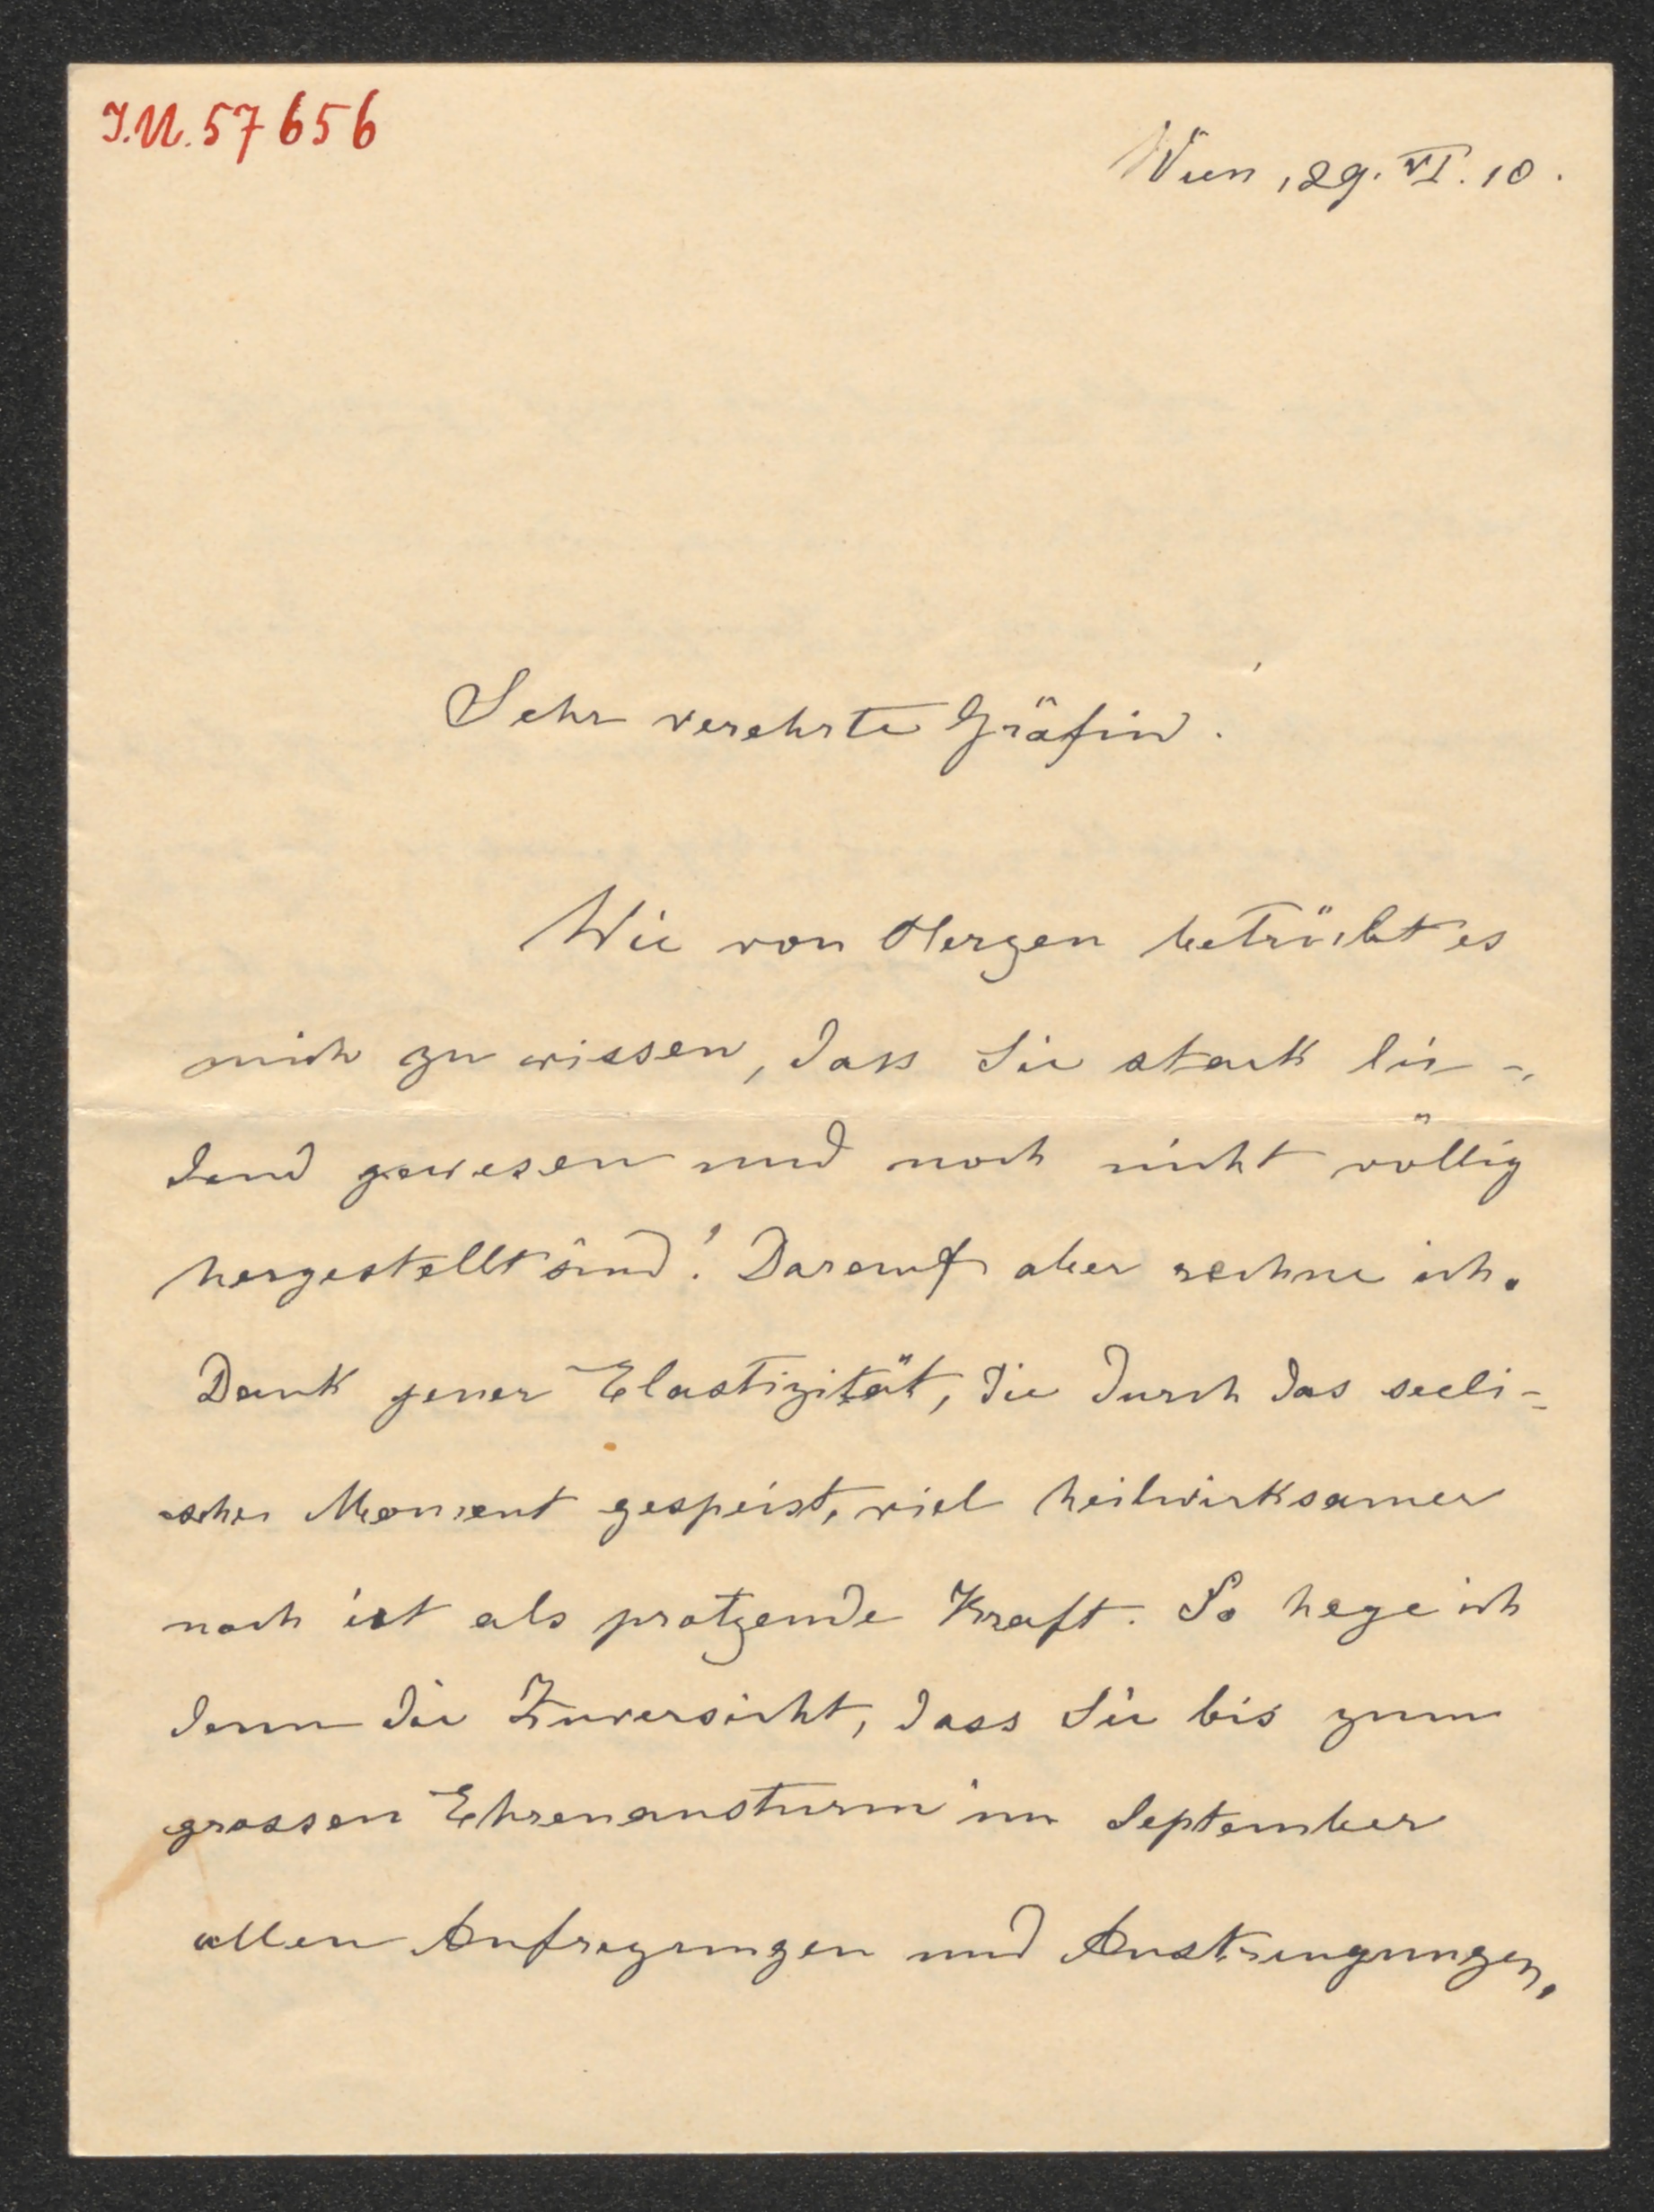 I.N. 57656
Wien, 29. VI. 10.
Sehr verehrte Gräfin!
Wie von Herzen betrübt es
mich zu wissen, dass Sie stark lei-
dend gewesen und noch nicht völlig
hergestellt sind! Darauf aber rechne ich.
Dank jener Elastizität, die durch das seeli-
sche Moment gespeist, viel heilwirksamer
noch ist als protzende Kraft. So hege ich
denn die Zuversicht, dass Sie bis zum
grossen Ehrenansturm im September
allen Aufregungen und Anstrengungen,